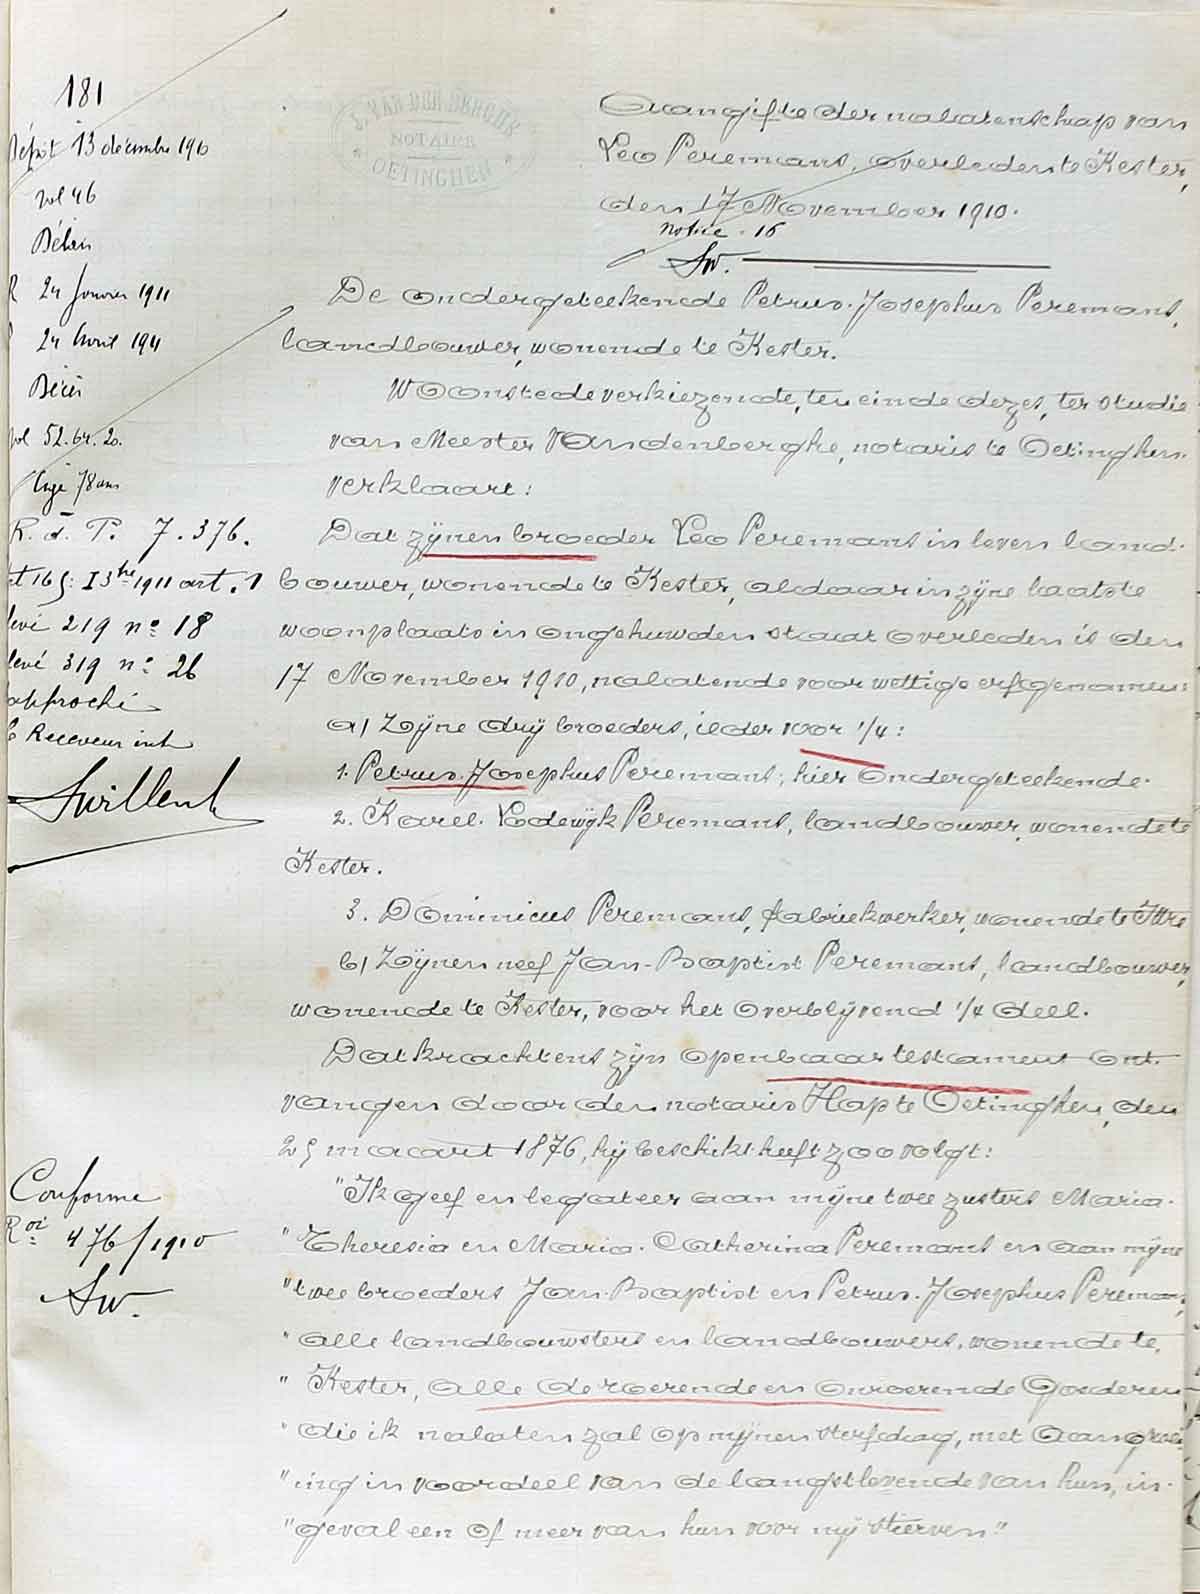 181
Dépôt 13 décembre 1910
vol 46
24 Janvier 1911
24 Avril 1911
vol 52. 64. 20.
âgé 78 ans
R. d. P. 7.376.
1911 art. 1
219 n° 18
319 n° 26
approché
Receveur
Conforme
476/1910
Sw.
NOTAIRE
OETINGHEN
Aangifte der nalatenschap van
Leo Peremans, overleden te Kester,
den 17 November 1910.
notice 16
Sw.
De ondergeteekende Petrus-Josephus Peremans,
landbouwer, wonende te Kester.
Woonstede verkiezende, ten einde dezes, ter studie
van Meester Vandenberghe, notaris te Oetinghen.
verklaart:
Dat zijnen broeder Leo Peremans in leven land-
bouwer, wonende te Kester, aldaar in zijne laatste
woonplaats in ongehuwden staat overleden is den
17 November 1910, nalatende voor wettige erfgenamen:
a/ Zijne drij broeders, ieder voor 1/4:
1. Petrus-Josephus Peremans, hier ondergeteekende.
2. Karel-Lodewijk Peremans, landbouwer, wonende te
Kester.
3. Dominicus Peremans, fabriekwerker, wonende te Ittre
b/ Zijnen neef Jan-Baptist Peremans, landbouwer,
wonende te Kester, voor het overblijvend 1/4 deel.
Dat krachtens zijn openbaar testament ont-
vangen door den notaris Hap te Oetinghen, den
25 maart 1876, hij beschikt heeft zoo volgt:
"Ik geef en legateer aan mijne twee zusters Maria-
"Theresia en Maria-Catherina Peremans en aan mijne
"twee broeders Jan-Baptist en Petrus-Josephus Peremans,
"alle landbouwsters en landbouwers, wonende te
"Kester, alle de roerende en onroerende goederen
"die ik nalaten zal op mijnen sterfdag, met aangroei-
"ing in voordeel van de langstlevende van hun, in-
"geval een of meer van hun voor mij stierven"